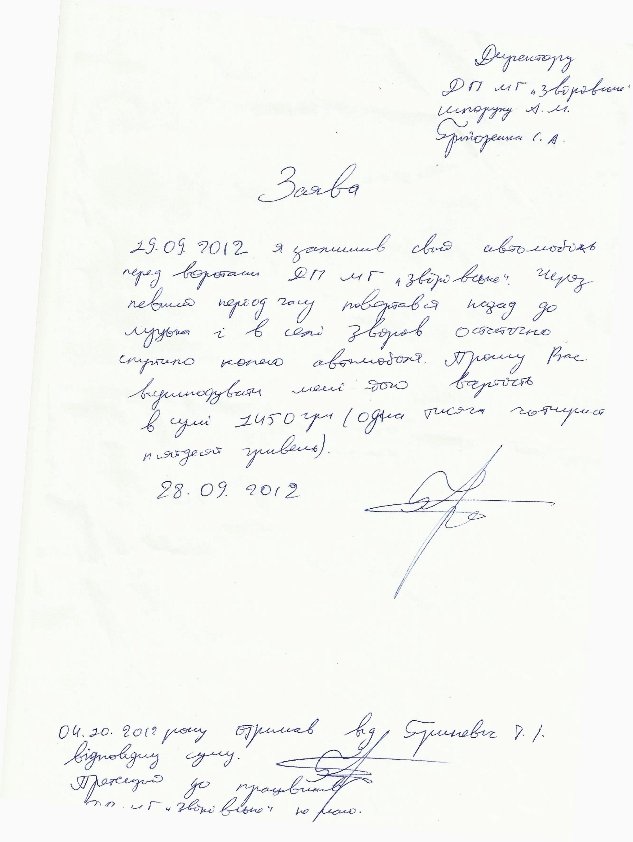 Директору
ДП МГ „Звірівське"
А. М.
І. А.
Заява
29.09.2012 я залишив свій автомобіль
перед воротами ДП МГ „Звірівське". Через
певний період часу повертався назад до
Луцька і в селі Звірів остаточно
спустило колесо автомобіля. Прошу Вас
відшкодувати мені його вартість
в сумі 1450 грн (одна тисяча чотириста
пятдесят гривень).
28.09.2012
04.20.2012 року отримав від Гриневич
відповідну суму.
Претензій до працівників
ДП МГ „Звірівське" не маю.